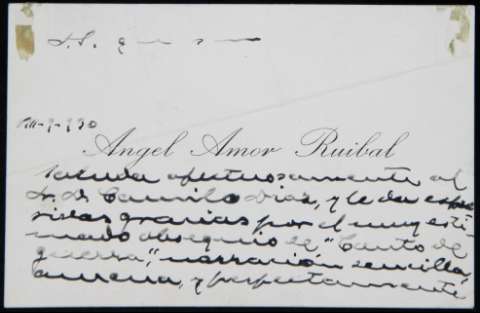 Angel Amor Ruibal
Saluda afectuosamente al
Sr. D. Camilo Díaz, y le da expre
sivas gracias por el muy esti-
mado obsequio de "Canto de
guerra", narración sencilla,
amena, y perfectamente